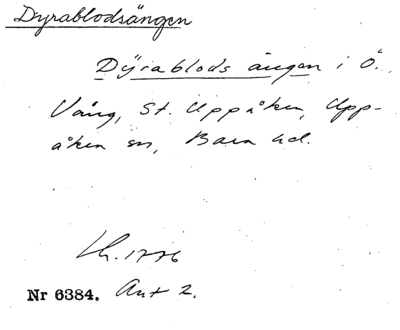 Dyrablodsängen
Dÿrablods ängen i Ö.
Vång, St. Uppåkra, Upp-
åkra sn, Bara hd.
Lh. 1776
Nr 6384. Ant 2.